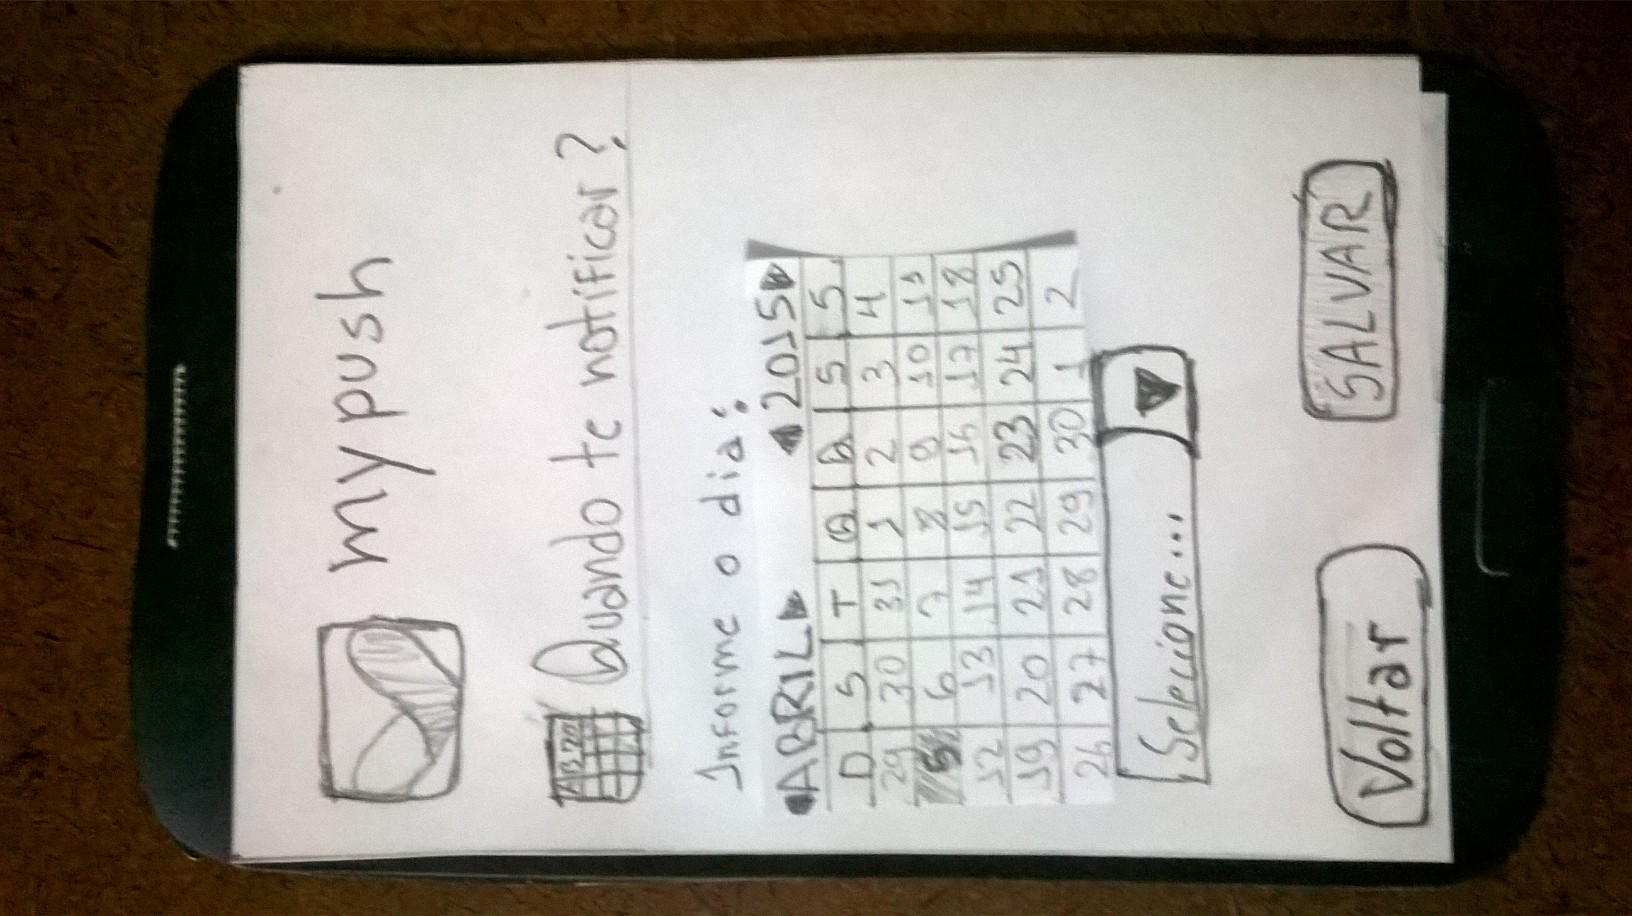 my push
AB 20
Quando te notificar?
Informe o dia:
ABRIL 2015
D S T Q Q S S
29 30 31 1 2 3 4
5 6 7 8 9 10 11
12 13 14 15 16 17 18
19 20 21 22 23 24 25
26 27 28 29 30 1 2
Selecione...
Voltar SALVAR